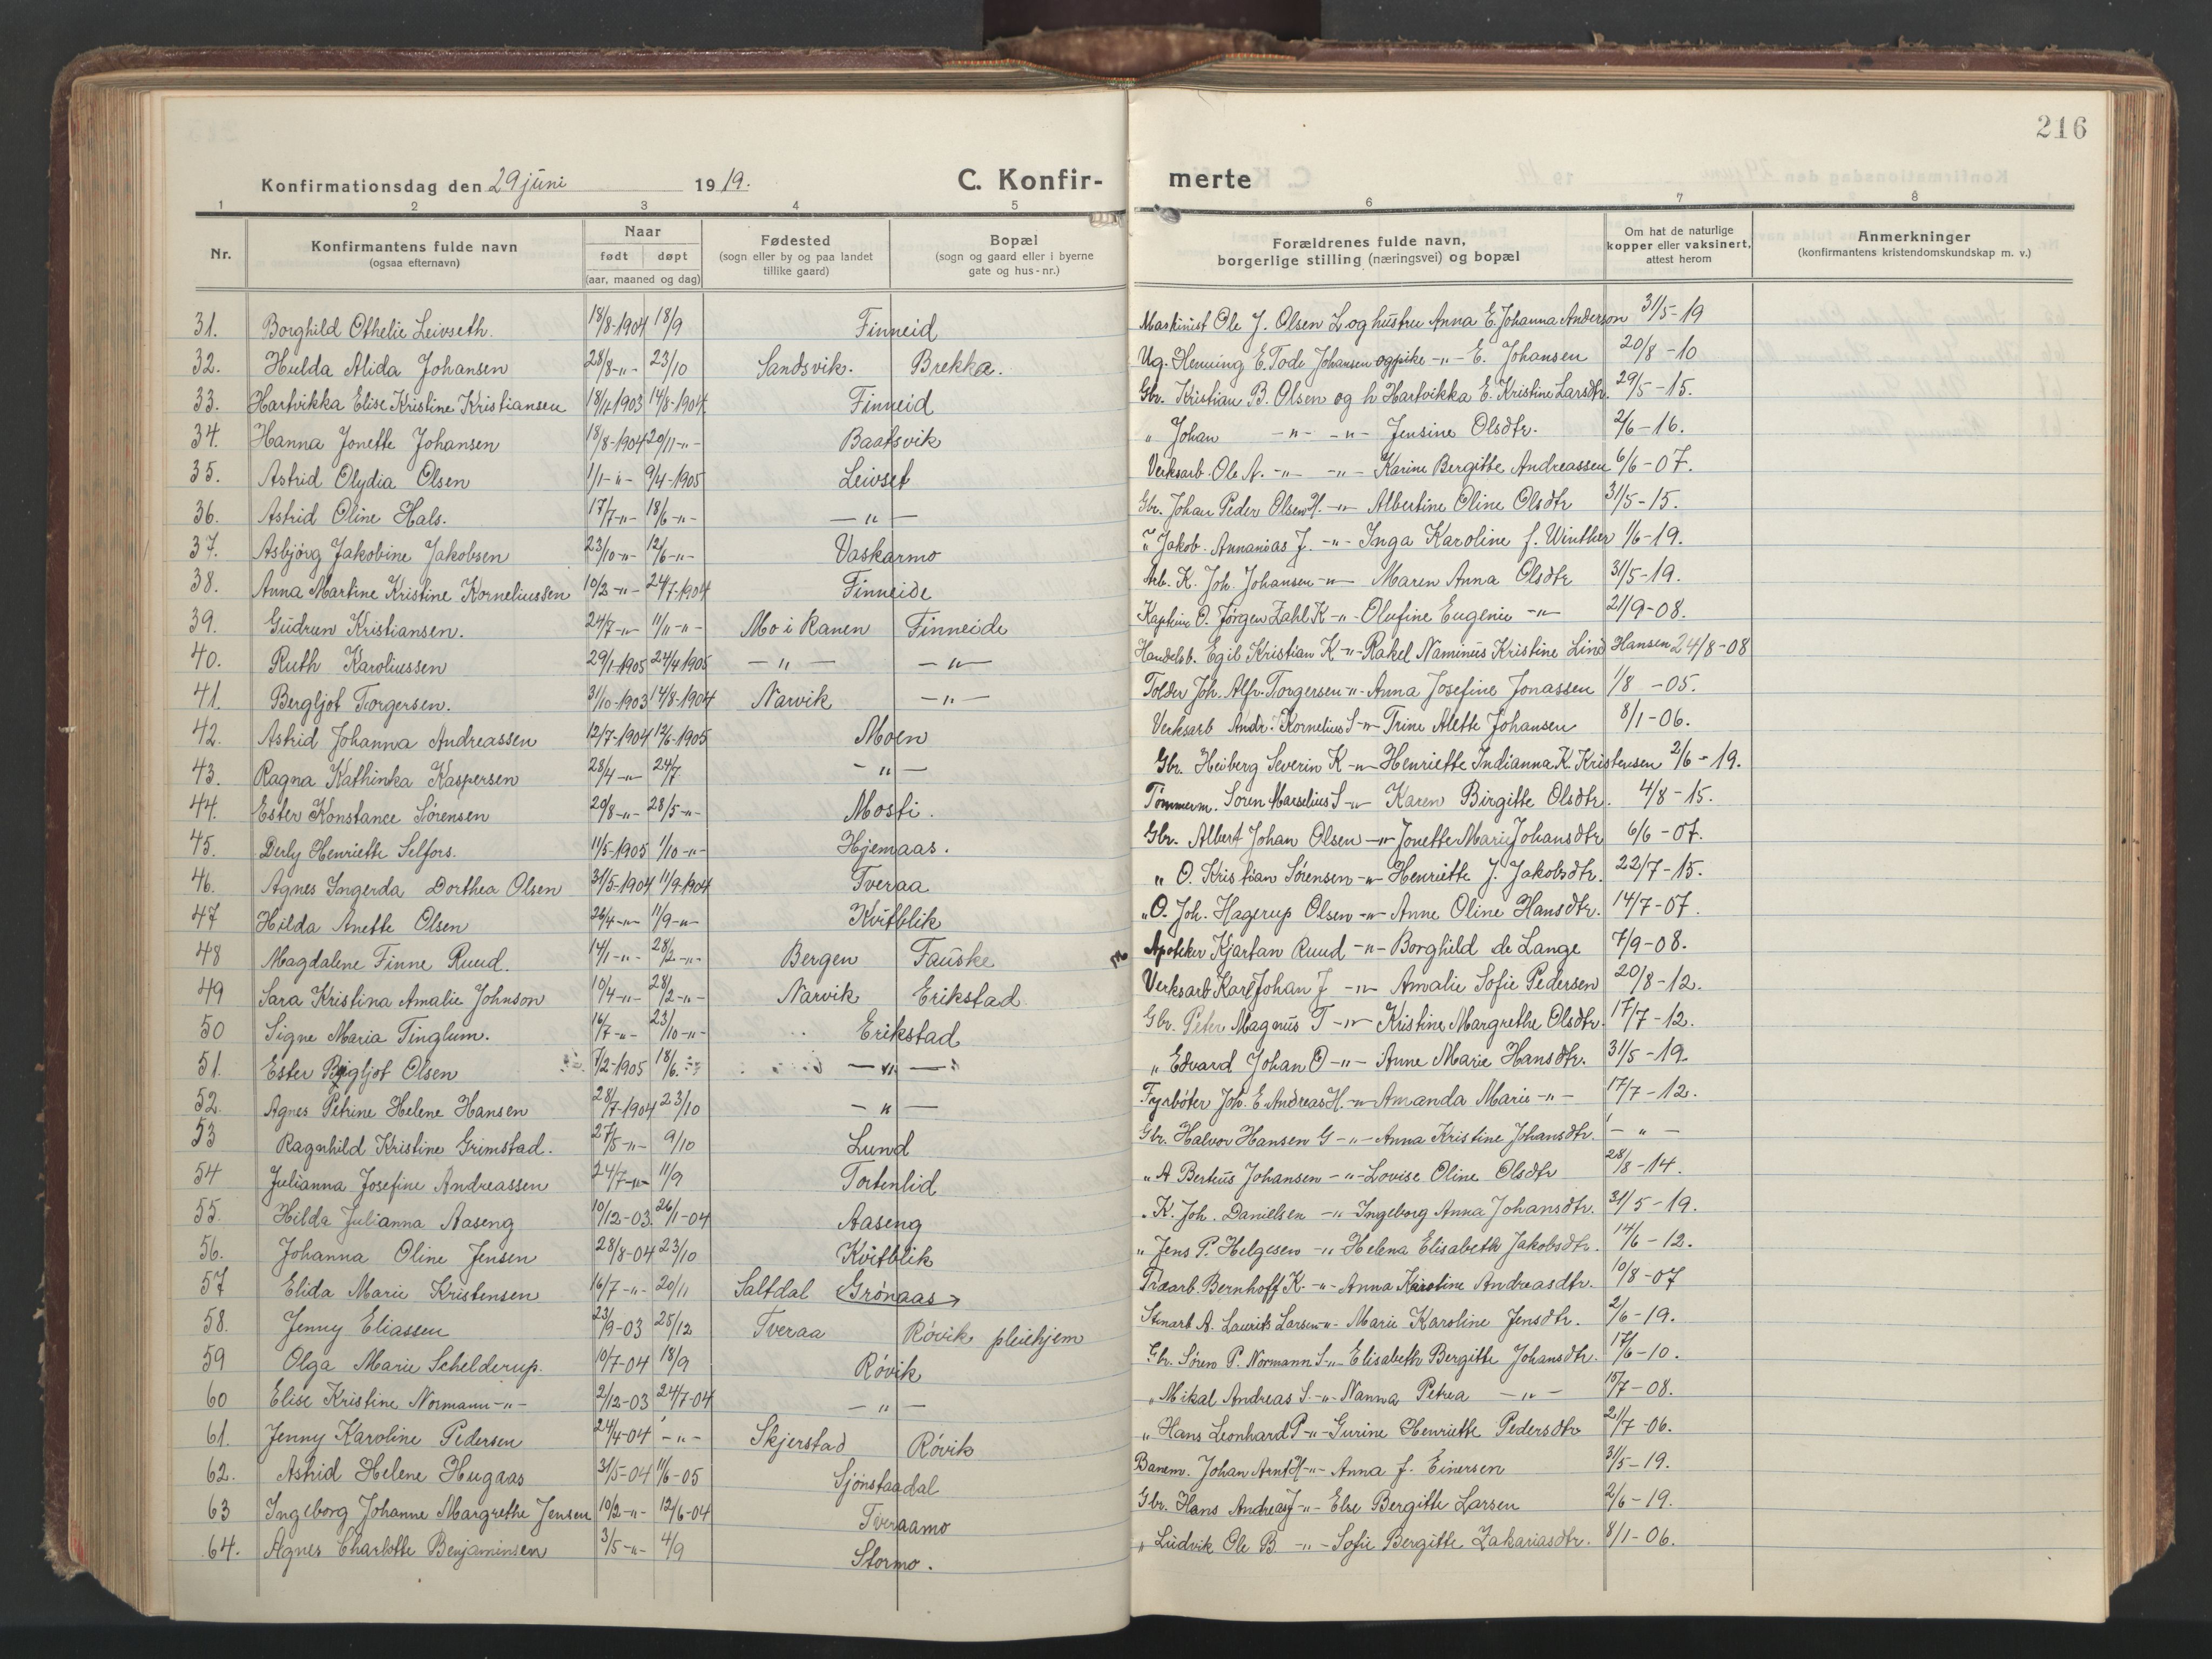 216
Konfirmationsdag den 29 juni 1919. C. Konfir- merte
1 2 3 4 5 6 7 8
Nr. Konfirmantens fulde navn (ogsaa efternavn) Naar født døpt (aar, maaned og dag) Fødested (sogn eller by og paa landet tillike gaard) Bopæl (sogn og gaard eller i byerne gate og hus-nr.) Forældrenes fulde navn, borgerlige stilling (næringsvei) og bopæl Om hat de naturlige kopper eller vaksinert, attest herom Anmerkninger (konfirmantens kristendomskundskap m. v.)
31. Borghild Othelie Leivseth. 18/8-1904 18/9 Finneid Maskinist Ole J. Olsen L og hustru Anna E. Johanna Anderson 31/5-19
32. Hulda Alida Johansen 28/8-"- 23/10 Sandsvik. Brekka. Ug. Henning E. Tode Johansen og pike -"- E. Johansen 20/8-10
33. Hartvikka Elise Kristine Kristiansen 18/11 1903 14/8-1904 Finneid Gbr. Kristian B. Olsen og h Hartvikka E. Kristine Larsdtr. 29/5-15.
34. Hanna Jonette Johansen 18/8-1904 20/11-"- Baatsvik " Johan -"- -"- Jensine Olsdtr. 2/6-16.
35. Astrid Olydia Olsen 1/1-"- 9/4-1905 Leivset Verksarb. Ole A. -"- -"- Karine Bergitte Andreassen 6/6-07.
36. Astrid Oline Hals. 17/7-"- 18/6-"- -"- Gbr. Johan Peder Olsen H. -"- Albertine Oline Olsdtr 31/5-15.
37. Asbjörg Jakobine Jakobsen 23/10-"- 12/6-"- Vaskarmo " Jakob. Annanias J. -"- Inga Karoline f. Winther 1/6-19.
38. Anna Martine Kristine Korneliussen 10/2-"- 24/7-1904 Finneide Arb. K. Joh. Johansen -"- Maren Anna Olsdtr 31/5-19.
39. Gudrun Kristiansen. 24/7-"- 11/11-"- Mo i Ranen Finneide O. Jørgen Zahl K -"- Olufine Eugenie -"- 21/9-08.
40. Ruth Karoliussen 29/1-1905 24/4 1905 -"- -"- Handelsb. Egil Kristian K -"- Rakel Naminus Kristine Lind Hansen 24/8-08
41. Bergljot Torgersen. 31/10-1903 14/8-1904 Narvik -"- Tolder Joh. Alfr. Torgersen -"- Anna Josefine Jonassen 1/8-05.
42. Astrid Johanna Andreassen 12/7-1904 12/6-1905 Moen Verksarb Andr. Kornelius S -"- Trine Alette Johansen 8/1-06.
43. Ragna Kathinka Kaspersen 28/4-"- 24/7 -"- Gbr. Heiberg Severin K -"- Henriette Indianna K. Kristensen 2/6-19.
44. Ester Konstance Sørensen 20/8-"- 28/5-"- Mosti. Tömmerm. Soren Marselius S -"- Karen Birgitte Olsdtr. 4/8-15.
45. Derly Henriette Selfors. 11/5-1905 1/10-"- Hjemaas. Gbr. Albert Johan Olsen -"- Jonette Marie Johansdtr 6/6-07.
46. Agnes Ingerda Dorthea Olsen 31/5-1904 11/9-1904 Tveraa " O. Kristian Sørensen -"- Henriette J. Jakobsdtr. 22/7-15.
47 Hilda Anette Olsen 26/4-"- 11/9-"- Kvitblik " O. Joh. Hagerup Olsen -"- Anne Oline Hansdtr. 14/7-07.
48 Magdalene Finne Ruud. 14/1-"- 28/2-"- Bergen Fauske Apoteker Kjartan Ruud -"- Borghild de Lange 7/9-08.
49 Sara Kristina Amalie Johnson 10/4-"- 28/2-"- Narvik Erikstad Verksarb Karl Johan J -"- Amalie Sofie Pedersen 20/8-12.
50 Signe Maria Tinglum. 16/7-"- 23/10-"- Erikstad Gbr. Peter Magnus T -"- Kristine Margrethe Olsdtr. 17/7-12.
51. Ester Bergljot Olsen 7/2-1905 18/6 -"- -"- " Edvard Johan O -"- Anne Marie Hansdtr. 31/5-19.
52. Agnes Petrine Helene Hansen 28/7-1904 23/10 -"- Fyrböter Joh. E. Andreas H. -"- Amanda Marie -"- 17/7-12.
53 Ragnhild Kristine Grimstad. 27/5-"- 9/10 Lund Gbr. Halvor Hansen G -"- Anna Kristine Johansdtr. -"-
54 Julianna Josefine Andreassen 24/7-"- 11/9 Tortenlid " A Berteus Johansen -"- Lovise Oline Olsdtr 28/8-14.
55. Hilda Julianna Aaseng 10/12-03. 26/1-04 Aaseng " K. Joh. Danielsen -"- Ingeborg Anna Johansdtr. 31/5-19.
56. Johanna Oline Jensen 28/8-04 23/10 Kvitblik " Jens P. Helgesen -"- Helena Elisabeth Jakobsdtr. 14/6-12.
57 Elida Marie Kristensen 16/7-"- 20/11 Saltdal Grönaas Bernhoff K. -"- Anna Karoline Andreasdtr. 10/8-07
58. Jenny Eliassen 23/9-03 25/12 Tveraa Rövik pleiehjem Stenarb A. Laurits Larsen -"- Marie Karoline Jensdtr. 2/6-19.
59 Olga Marie Schelderup. 10/7-04 18/9 Rövik Gbr. Sören P. Normann S -"- Elisabeth Bergitte Johansdtr. 17/6-10.
60 Elise Kristine Normann -"- 2/12-03 24/7-04 -"- " Mikal Andreas S. -"- Nanna Petrea -"- 15/7-08.
61. Jenny Karoline Pedersen 24/4-04 -"- Skjerstad Rövik " Hans Leonhard P -"- Gurine Henriette Pedersdtr 21/7-06.
62. Astrid Helene Hugaas 31/5-04 11/6-05 Sjönstaadal Banem. Johan Arnt H -"- Anna f. Einersen 31/5-19.
63 Ingeborg Johanne Margrethe Jensen 10/2-"- 12/6-04 Tveraamo Gbr. Hans Andreas J -"- Else Bergitte Larsen 2/6-19.
64. Agnes Charlotte Benjaminsen 3/5-"- 4/9 Stormo. " Ludvik Ole B -"- Sofie Bergitte Zakariasdtr. 8/1-06.